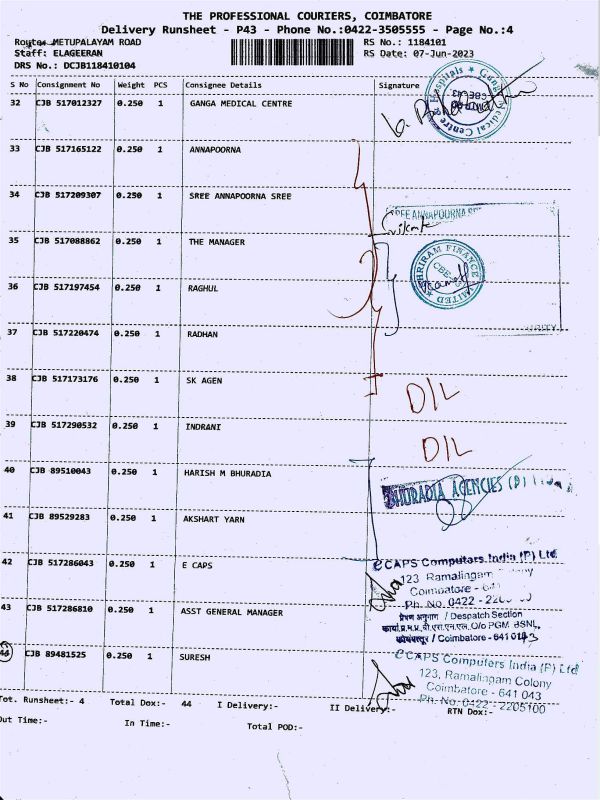 THE PROFESSIONAL COURIERS, COIMBATORE
Delivery Runsheet - P43 - Phone No.:0422-3505555 - Page No.:4
Route: METUPALAYAM ROAD RS No.: 1184101
Staff: ELAGEERAN RS Date: 07-Jun-2023
DRS No.: DCJB118410104
S No Consignment No Weight PCS Consignee Details Signature
32 CJB 517012327 0.250 1 GANGA MEDICAL CENTRE
33 CJB 517165122 0.250 1 ANNAPOORNA
34 CJB 517209307 0.250 1 SREE ANNAPOORNA SREE
SREE ANNAPOORNA
35 CJB 517088862 0.250 1 THE MANAGER
SHRIRAM FINANCE LIMITED
36 CJB 517197454 0.250 1 RAGHUL
37 CJB 517220474 0.250 1 RADHAN
38 CJB 517173176 0.250 1 SK AGEN
D/L
39 CJB 517290532 0.250 1 INDRANI
D/L
40 CJB 89510043 0.250 1 HARISH M BHURADIA
BHURADIA AGENCIES (P)
41 CJB 89529283 0.250 1 AKSHART YARN
42 CJB 517286043 0.250 1 E CAPS
eCAPS Computers India (P) Ltd
123, Ramalingam Colony
Coimbatore - 641
Ph. No. 0422 -
43 CJB 517286810 0.250 1 ASST GENERAL MANAGER
प्रेषण अनुभाग / Despatch Section
O/o PGM BSNL,
कोयंबत्तूर / Coimbatore - 641 043
44 CJB 89481525 0.250 1 SURESH
eCAPS Computers India (P) Ltd
123, Ramalingam Colony
Coimbatore - 641 043
Ph. No: 0422 - 2205100
Tot. Runsheet:- 4 Total Dox:- 44 I Delivery:- II Delivery:- RTN Dox:-
Out Time:- In Time:- Total POD:-